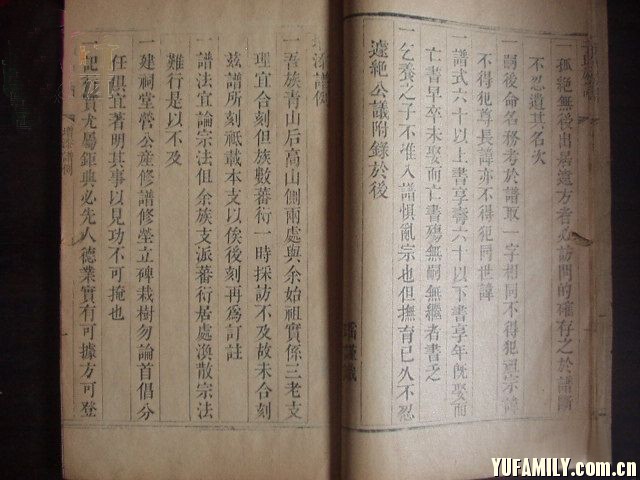 一孤絶無後出居遠方者必訪問的確存之於譜斷
不忍遺其名次
嗣後命名務考於譜取一字相同不得犯祖宗諱
不得犯尊長諱亦不得犯同世諱
一譜式六十以上書享壽六十以下書享年旣娶而
亡書早卒未娶而亡書殤無嗣無繼者書止
一乞養之子不准入譜惧亂宗也但撫育已久不忍
遽絶公議附錄於後
增添譜例
一吾族青山后高山側兩處與余始祖實係三老支
理宜合刻但族數蕃衍一時採訪不及故未合刻
兹譜所刻祗載本支以俟後刻再爲訂註
一譜法宜論宗法但余族支派蕃衍居處渙散宗法
難行是以不及
一建祠堂營公産修譜修塋立碑栽樹勿論首倡分
任俱宜著明其事以見功不可掩也
一記 實尤屬鉅典必先人德業實有可據方可登
增添譜例
YUFAMILY.com.cn